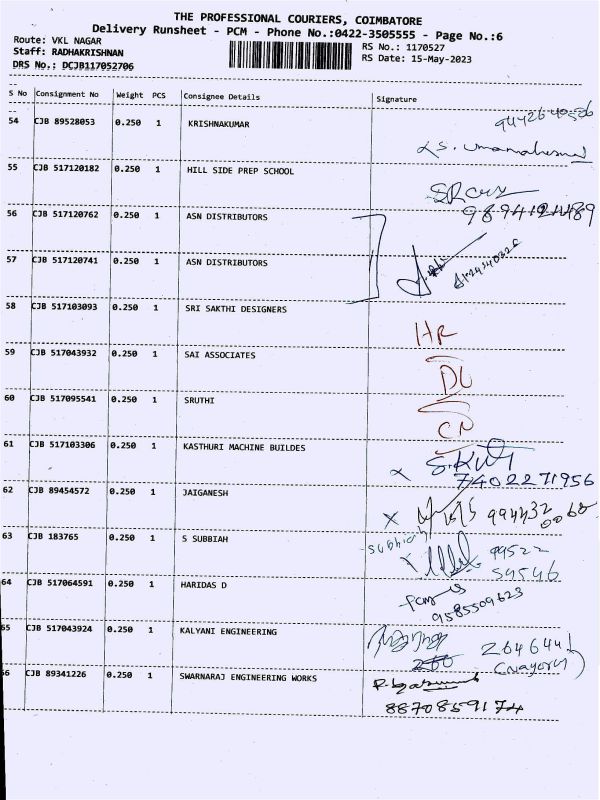 THE PROFESSIONAL COURIERS, COIMBATORE
Delivery Runsheet - PCM - Phone No.:0422-3505555 - Page No.:6
Route: VKL NAGAR RS No.: 1170527
Staff: RADHAKRISHNAN RS Date: 15-May-2023
DRS No.: DCJB117052706
S No Consignment No Weight PCS Consignee Details Signature
54 CJB 89528053 0.250 1 KRISHNAKUMAR
55 CJB 517120182 0.250 1 HILL SIDE PREP SCHOOL
56 CJB 517120762 0.250 1 ASN DISTRIBUTORS
57 CJB 517120741 0.250 1 ASN DISTRIBUTORS
58 CJB 517103093 0.250 1 SRI SAKTHI DESIGNERS
HR
59 CJB 517043932 0.250 1 SAI ASSOCIATES
DL
60 CJB 517095541 0.250 1 SRUTHI
CN
61 CJB 517103306 0.250 1 KASTHURI MACHINE BUILDES
7402271956
62 CJB 89454572 0.250 1 JAIGANESH
9944320060
63 CJB 183765 0.250 1 S SUBBIAH
subbiah
99522
54546
64 CJB 517064591 0.250 1 HARIDAS D
9585509623
65 CJB 517043924 0.250 1 KALYANI ENGINEERING
66 CJB 89341226 0.250 1 SWARNARAJ ENGINEERING WORKS
8870859174